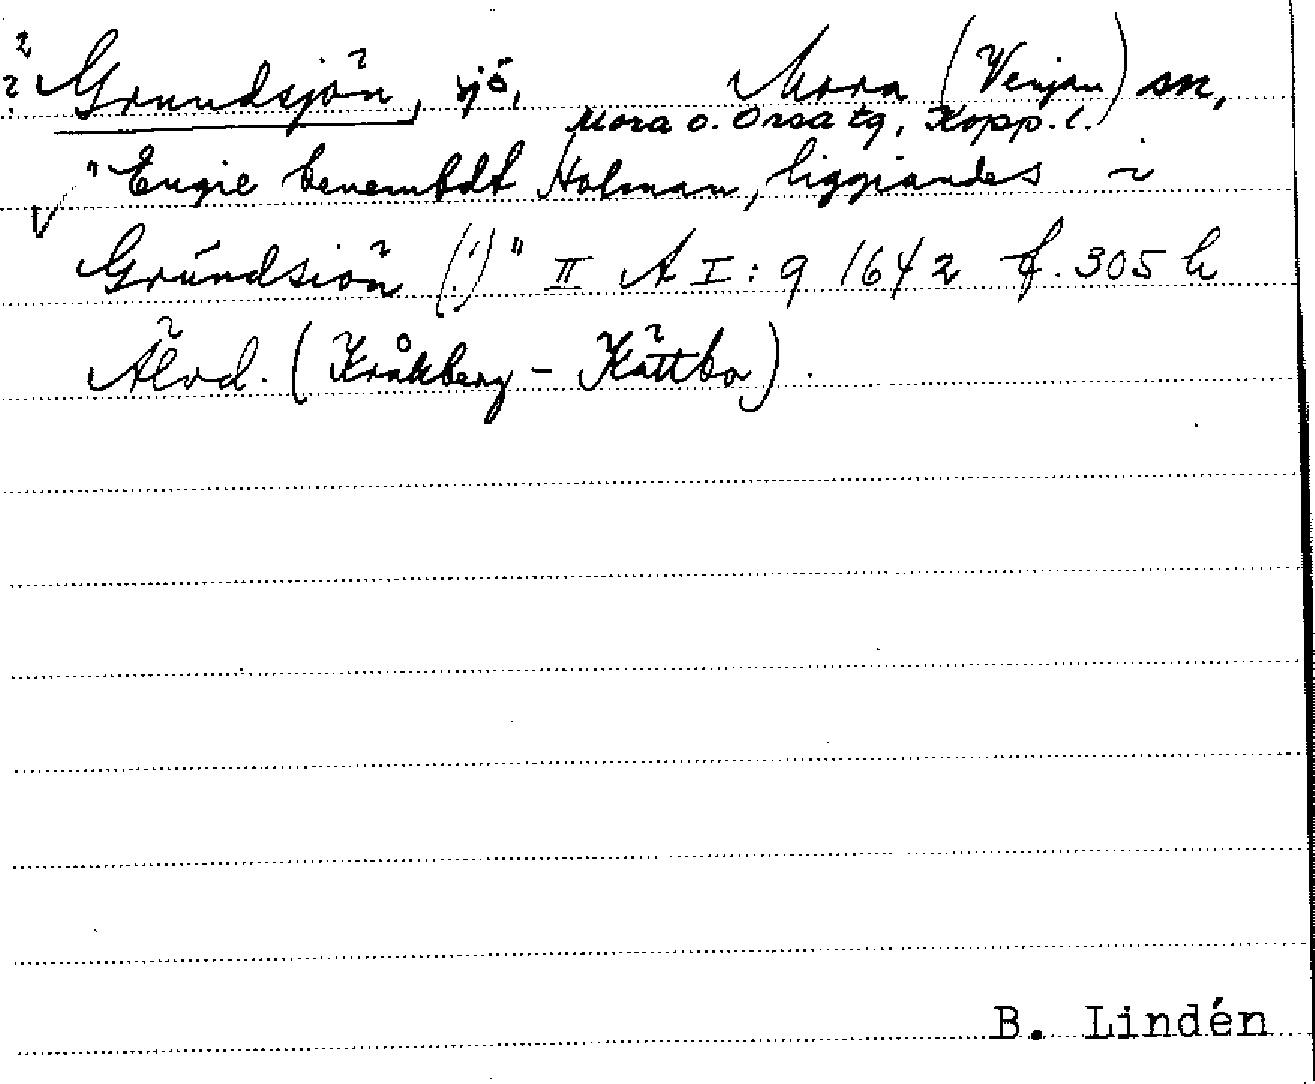 ? Grundsjön, sjö, Mora (Venjan) sn,
Mora o. Orsa tg, Kopp. l.
"Engie benembdt Holman, liggiandes i
Grúndsiön (!)" II A I: 9 1642 f. 305 h
Älvd. (Kråkberg - Kättbo).
B. Lindén